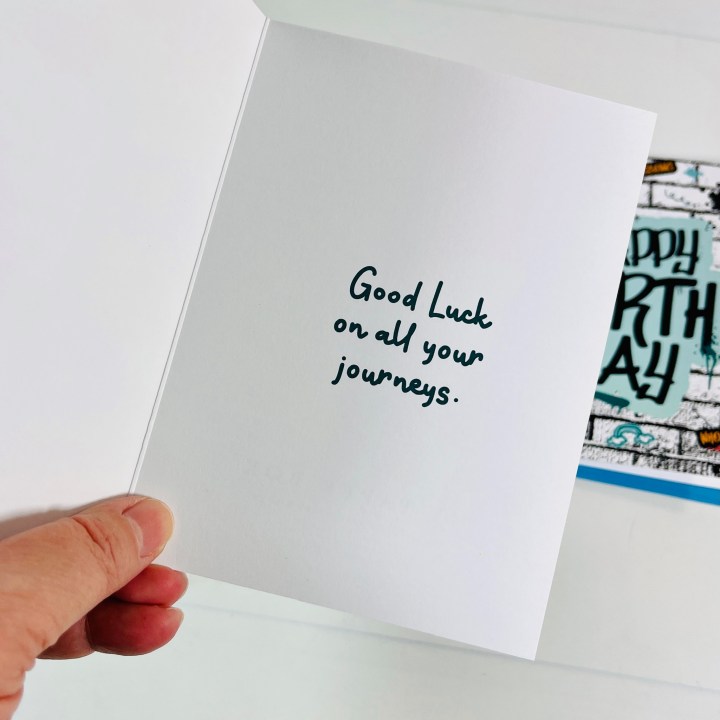 Good Luck
on all your
journeys.
APPY
RTH
AY